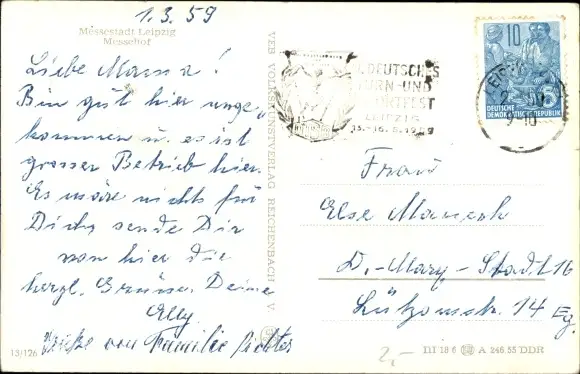 1.3.59
Messestadt Leipzig
Messehof
Liebe Mama!
Bin gut hier ange-
kommen u. es ist
grosser Betrieb hier.
Es wäre nichts für
Dich, sende Dir
von hier die
herzl. Grüsse Deine
Elly
Grüße von Familie Richter
13/126
VEB VOLKSKUNSTVERLAG REICHENBACH I. V.
DEUTSCHES
TURN-UND
SPORTFEST
LEIPZIG
13.-16.8.1959
10
DEUTSCHE
DEMOKRATISCHE REPUBLIK
Frau
Else
D.-Mary-Stadt 16
Lützowstr. 14 Eg.
2,-
III 18 6 A 246 55 DDR